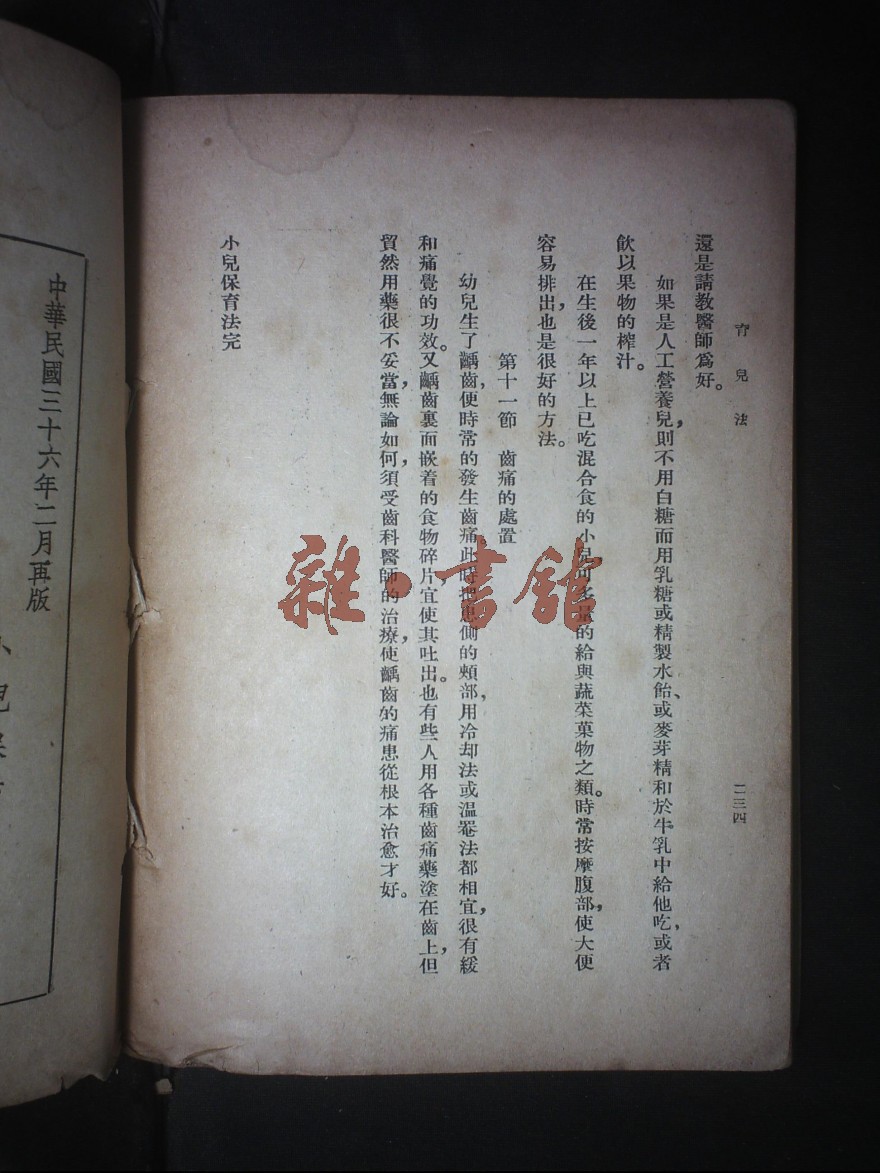 育兒法
二三四
還是請教醫師爲好。
如果是人工營養兒,則不用白糖而用乳糖或精製水飴、或麥芽精和於牛乳中給他吃,或者
飲以果物的榨汁。
在生後一年以上已吃混合食的小兒可多量的給與蔬菜菓物之類。時常按摩腹部,使大便
容易排出,也是很好的方法。
第十一節 齒痛的處置
幼兒生了齲齒,便時常的發生齒痛。此時把患側的頰部,用冷却法或溫罨法都相宜,很有緩
和痛覺的功效。又齲齒裏面嵌着的食物碎片宜使其吐出。也有些人用各種齒痛藥塗在齒上,但
貿然用藥很不妥當,無論如何,須受齒科醫師的治療,使齲齒的痛患從根本治愈才好。
小兒保育法完
雜·書館
中華民國三十六年二月再版